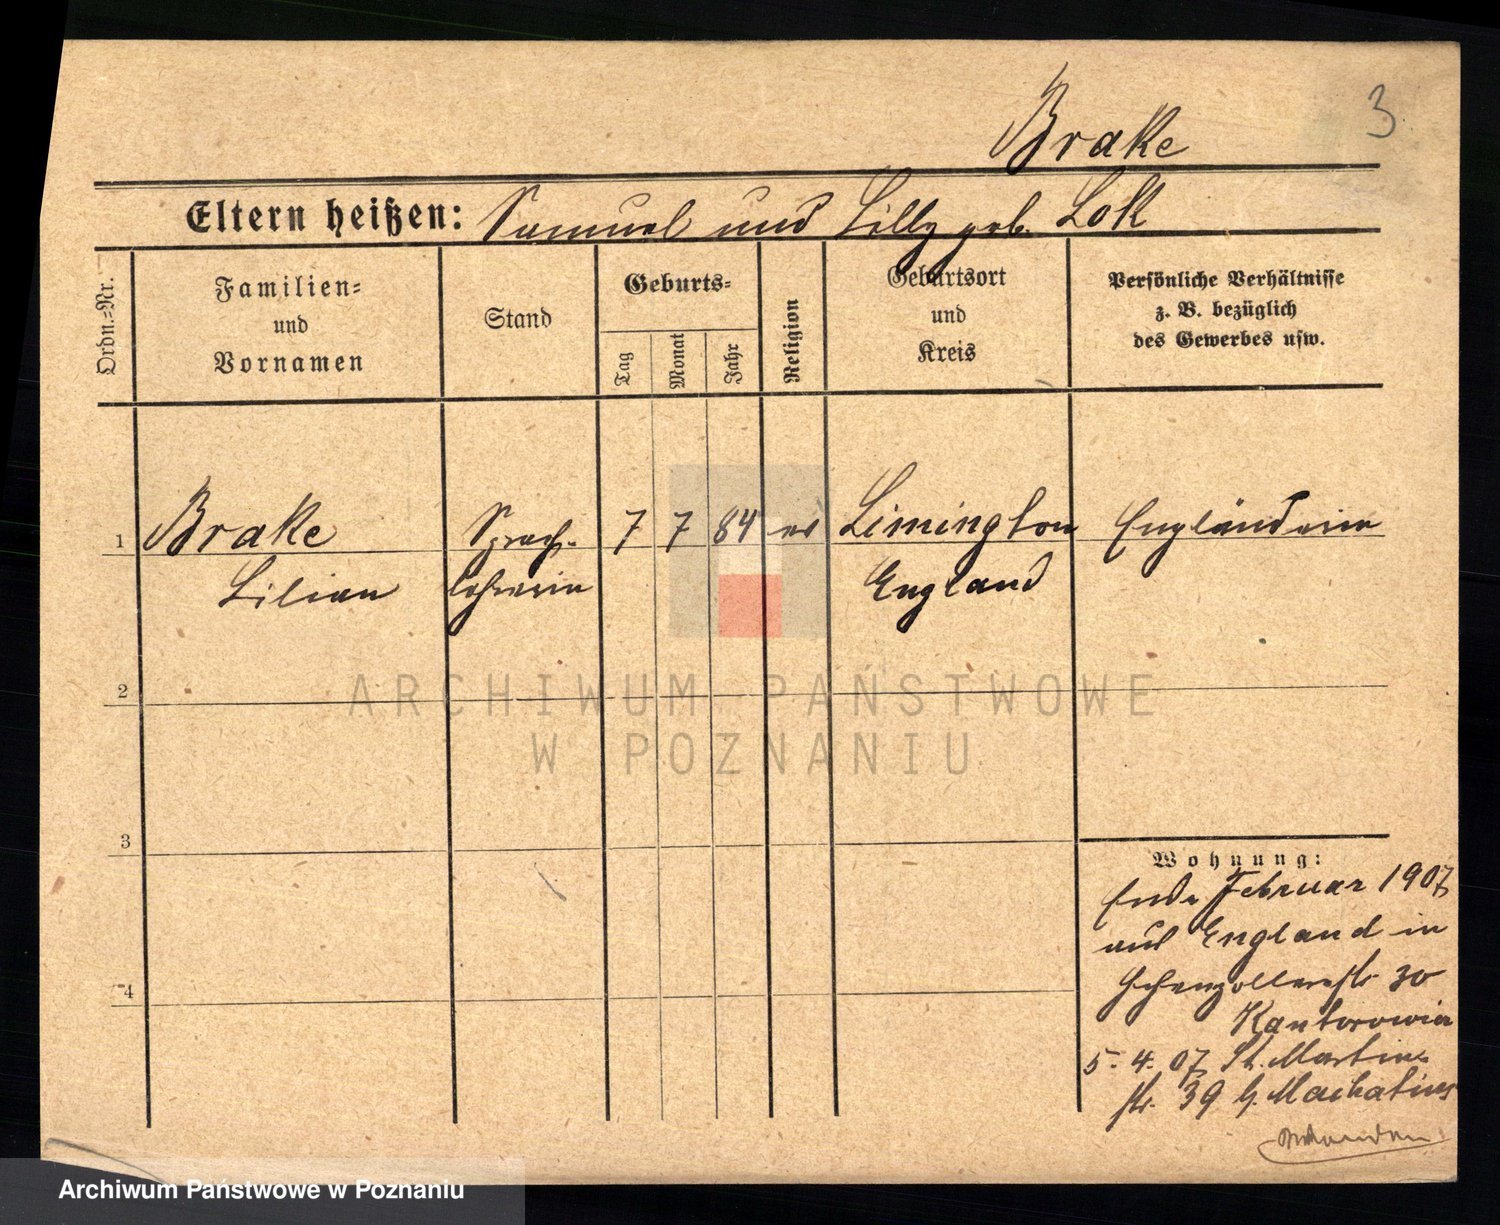 3
Brake
Eltern heißen: Samuel und Lilly geb. Lok
Ordn.=Nr.
Familien=
und
Vornamen
Stand
Geburts=
Tag
Monat
Jahr
Religion
Geburtsort
und
Kreis
Persönliche Verhältnisse
z. B. bezüglich
des Gewerbes usw.
1 Brake Sprach- 7 7 84 ev Limington Engländerin
Lilian lehrerin England
2
3
4
Wohnung:
Ende Februar 1907
aus England in
Hohenzollernstr 30
Kantorowicz
5. 4. 07 St. Martin-
str. 39 b. Machatius
ARCHIWUM PAŃSTWOWE
W POZNANIU
Archiwum Państwowe w Poznaniu